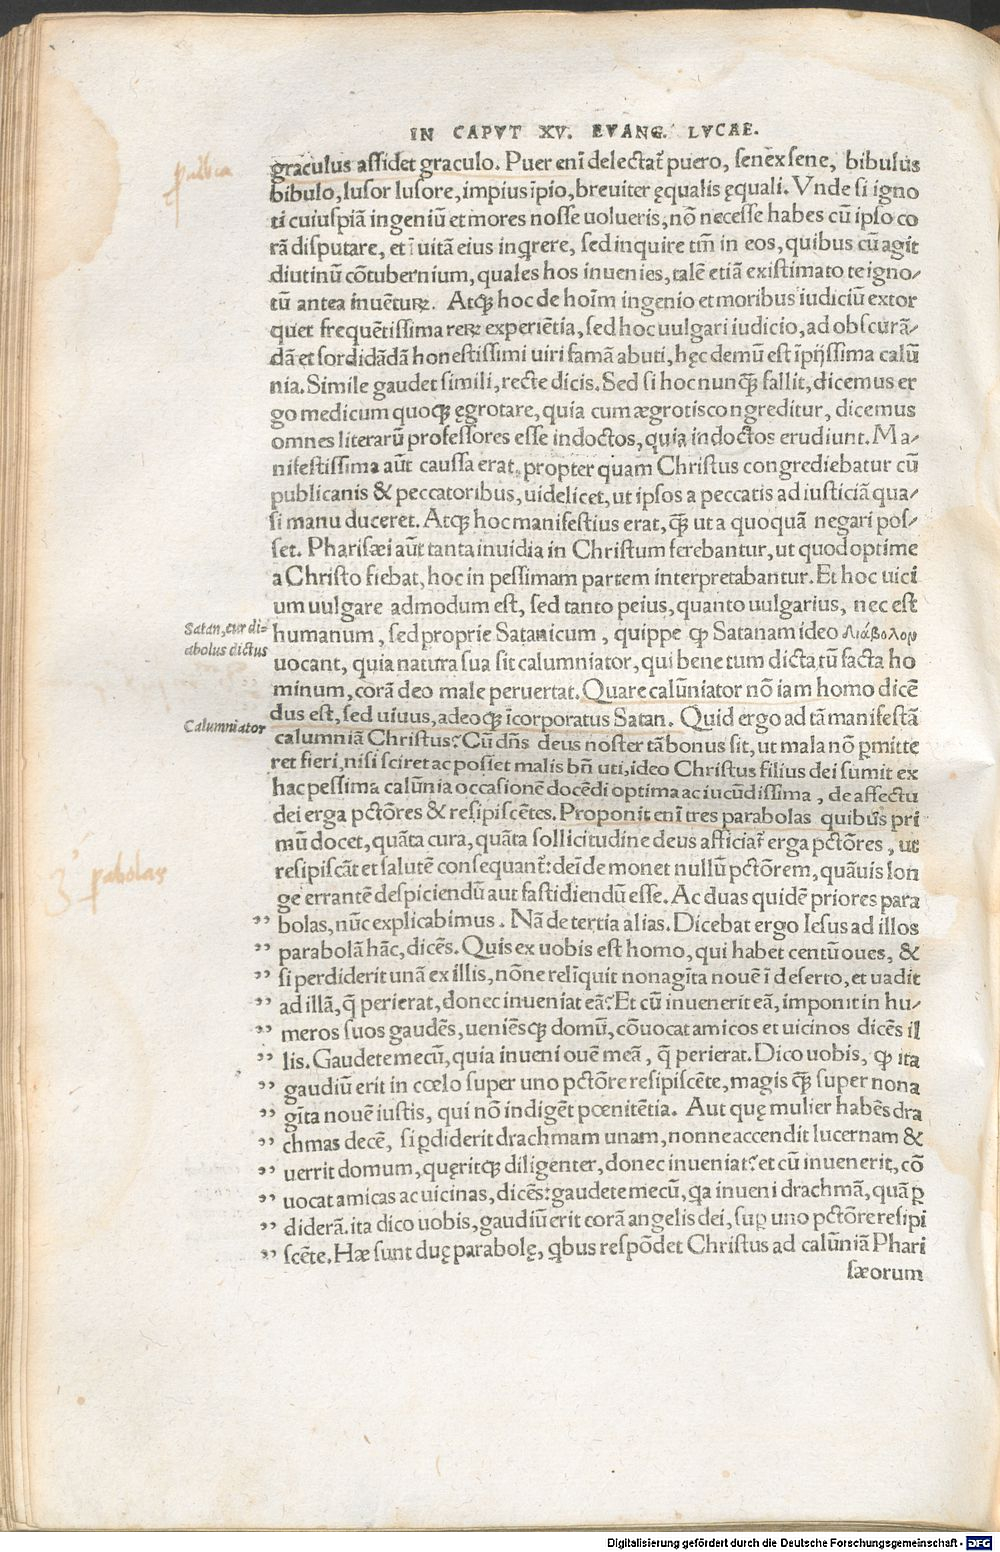 IN CAPVT XV. EVANG. LVCAE.
graculus assidet graculo. Puer eni᷈ delectat᷑ puero, senex sene, bibulus
bibulo, lusor lusore, impius ĩpio, breuiter ęqualis ęquali. Vnde si igno
ti cuiuspiã ingeniũ et mores nosse uolueris, nõ necesse habes cũ ipso co
rã disputare, et ĩ uitã eius inqrere, sed inquire tm̃ in eos, quibus cũ agit
diutinũ cõtubernium, quales hos inuenies, talẽ etiã existimato te igno⸗
tũ antea inuẽturꝝ. Atqꝫ hoc de hoĩm ingenio et moribus iudiciũ extor
quet frequẽtissima rerꝝ experiẽtia, sed hoc uulgari iudicio, ad obscurã⸗
dã et sordidãdã honestissimi uiri famã abuti, hęc demũ est ĩpijssima calũ
nia. Simile gaudet simili, recte dicis. Sed si hoc nunqꝫ̃ fallit, dicemus er
go medicum quoqꝫ ęgrotare, quia cum ægrotis congreditur, dicemus
omnes literarũ professores esse indoctos, quia indoctos erudiunt. Ma⸗
nifestissima aũt caussa erat, propter quam Christus congrediebatur cũ
publicanis & peccatoribus, uidelicet, ut ipsos a peccatis ad iusticiã qua⸗
si manu duceret. Atqꝫ hoc manifestius erat, qꝫ̃ ut a quoquã negari pos⸗
set. Pharisæi aũt tanta inuidia in Christum ferebantur, ut quod optime
a Christo fiebat, hoc in pessimam partem interpretabantur. Et hoc uici
um uulgare admodum est, sed tanto peius, quanto uulgarius, nec est
Satan, cur di⸗
abolus dictus
humanum, sed proprie Satanicum, quippe ꝙ Satanam ideo διάβολον
uocant, quia natura sua sit calumniator, qui bene tum dicta tũ facta ho
minum, corã deo male peruertat. Quare calũniator nõ iam homo dicẽ
Calumniator
dus est, sed uiuus, adeoqꝫ ĩcorporatus Satan. Quid ergo ad tã manifestã
calumniã Christus? Cũ dñs deus noster tã bonus sit, ut mala nõ ꝑmitte
ret fieri, nisi sciret ac posset malis bñ uti, ideo Christus filius dei sumit ex
hac pessima calũnia occasionẽ docẽdi optima ac iucũdissima, de affectu
dei erga pctõres & resipiscẽtes. Proponit eni᷈ tres parabolas quibus pri
3 ꝑabolas
mũ docet, quãta cura, quãta sollicitudine deus afficiat᷑ erga pctõres, ut
resipiscãt et salutẽ consequant᷑: deĩde monet nullũ pctõrem, quãuis lon
ge errantẽ despiciendũ aut fastidiendũ esse. Ac duas quidẽ priores para
„ bolas, nũc explicabimus. Nã de tertia alias. Dicebat ergo Iesus ad illos
„ parabolã hãc, dicẽs. Quis ex uobis est homo, qui habet centũ oues, &
„ si perdiderit unã ex illis, nõne relĩquit nonagĩta nouẽ ĩ deserto, et uadit
„ ad illã, q̃ perierat, donec inueniat eã? Et cũ inuenerit eã, imponit in hu⸗
„ meros suos gaudẽs, ueniẽsqꝫ domũ, cõuocat amicos et uicinos dicẽs il
„ lis. Gaudete mecũ, quia inueni ouẽ meã, q̃ perierat. Dico uobis, ꝙ ita
„ gaudiũ erit in cœlo super uno pctõre resipiscẽte, magis qꝫ̃ super nona
„ gĩta nouẽ iustis, qui nõ indigẽt pœnitẽtia. Aut quę mulier habẽs dra
„ chmas decẽ, si ꝑdiderit drachmam unam, nonne accendit lucernam &
„ uerrit domum, quęritqꝫ diligenter, donec inueniat? et cũ inuenerit, cõ
„ uocat amicas ac uicinas, dicẽs: gaudete mecũ, qa inueni drachmã, quã ꝑ
„ diderã. ita dico uobis, gaudiũ erit corã angelis dei, suꝑ uno pctõre resipi
„ scẽte. Hæ sunt duę parabolę, qbus respõdet Christus ad calũniã Phari
sæorum
Digitalisierung gefördert durch die Deutsche Forschungsgemeinschaft - DFG